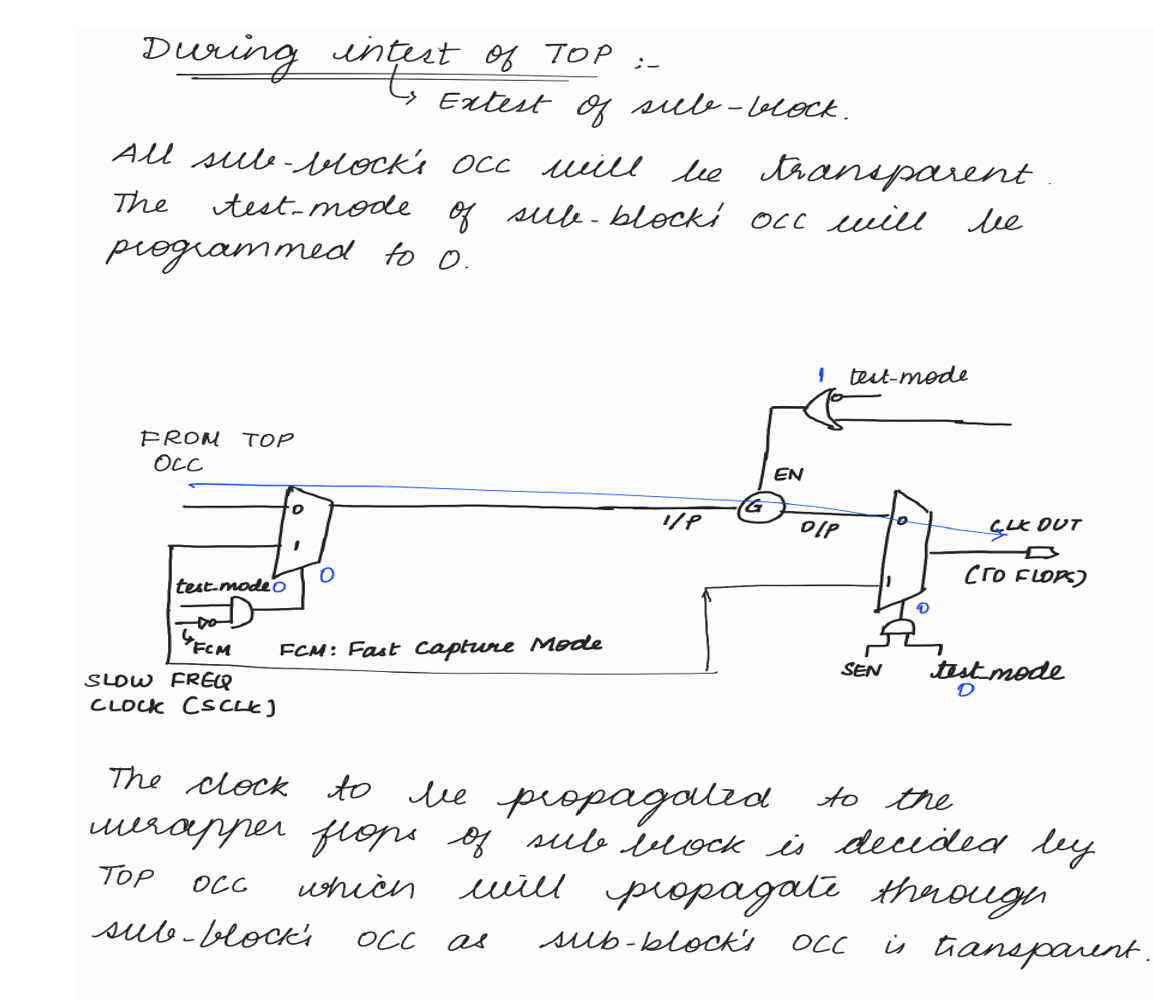 During intest of TOP :-
↳ Extest of sub-block.
All sub-block's OCC will be transparent.
The test-mode of sub-block's OCC will be
programmed to 0.
1 test-mode
FROM TOP
OCC
EN
0
G
0
I/P
O/P
CLK OUT
1
(TO FLOPS)
test-mode 0
0
1
0
FCM
FCM: Fast Capture Mode
SEN
test_mode
0
SLOW FREQ
CLOCK [SCLK]
The clock to be propagated to the
wrapper flops of sub block is decided by
TOP OCC which will propagate through
sub-block's OCC as sub-block's OCC is transparent.